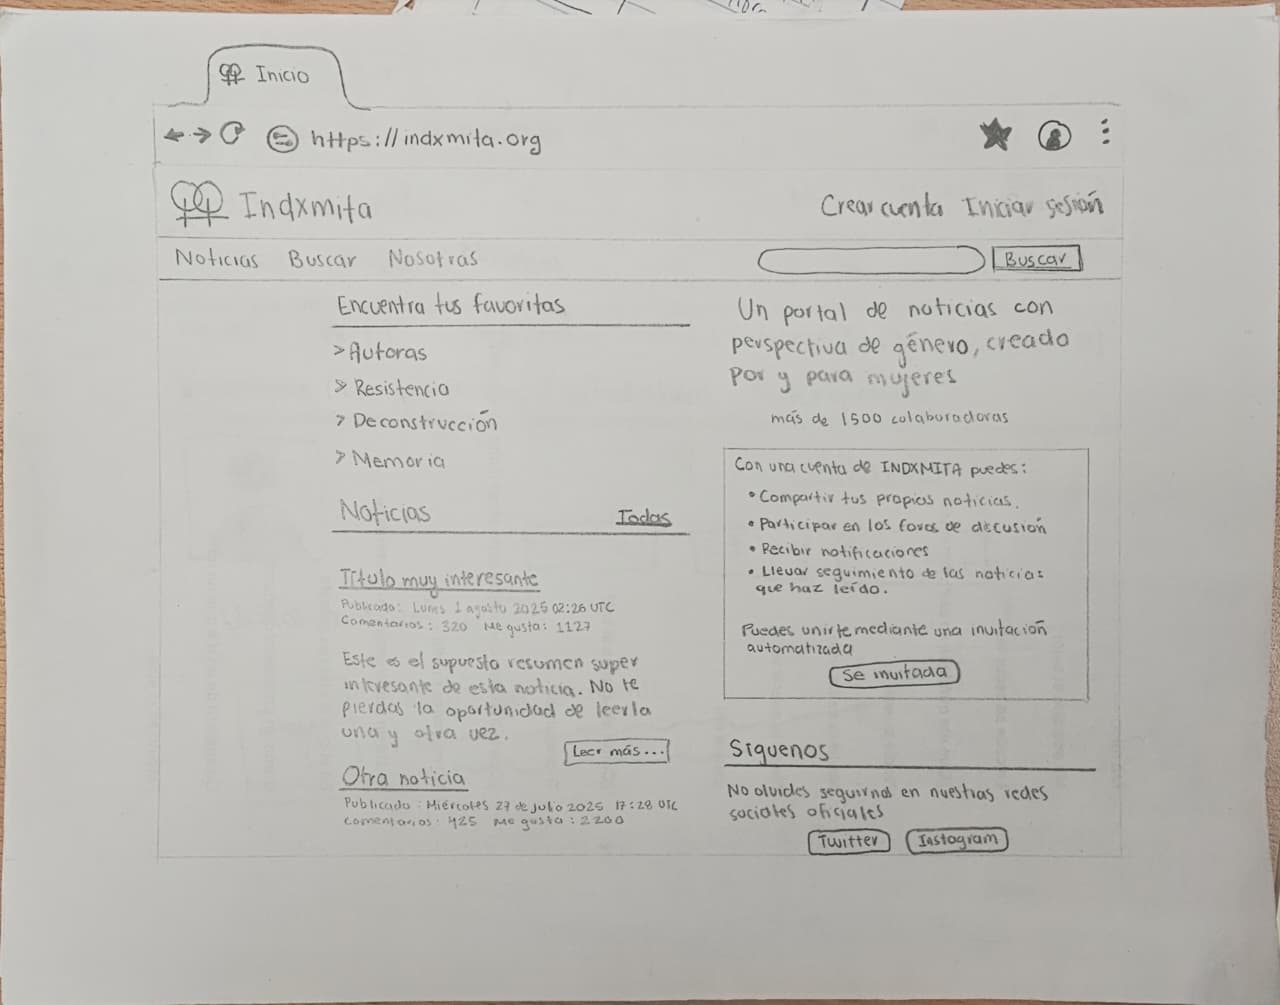 Inicio
https://indxmita.org
Indxmita
Crear cuenta Iniciar sesión
Noticias Buscar Nosotras
Buscar
Encuentra tus favoritas
> Autoras
> Resistencia
> Deconstrucción
> Memoria
Noticias Todas
Título muy interesante
Publicado: Lunes 1 agosto 2025 02:26 UTC
Comentarios: 320 Me gusta: 1127
Este es el supuesto resumen super
interesante de esta noticia. No te
pierdas la oportunidad de leerla
una y otra vez.
Leer más...
Otra noticia
Publicado: Miércoles 27 de julio 2025 17:28 UTC
Comentarios: 425 Me gusta: 2200
Un portal de noticias con
perspectiva de género, creado
por y para mujeres
más de 1500 colaboradoras
Con una cuenta de INDXMITA puedes:
• Compartir tus propias noticias.
• Participar en los foros de discusión
• Recibir notificaciones
• Llevar seguimiento de las noticias
que haz leído.
Puedes unirte mediante una invitación
automatizada
Se invitada
Síguenos
No olvides seguirnos en nuestras redes
sociales oficiales
Twitter Instagram